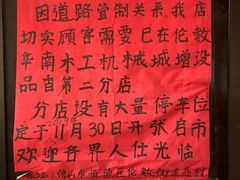 因道路管制关系.我店
切实顾客需要.已在伦教
华南木工机械城增设
品香第二分店.
分店设有大量停车位
定于11月30日开张启市
欢迎各界人仕光临
地址:佛山市顺德区伦教